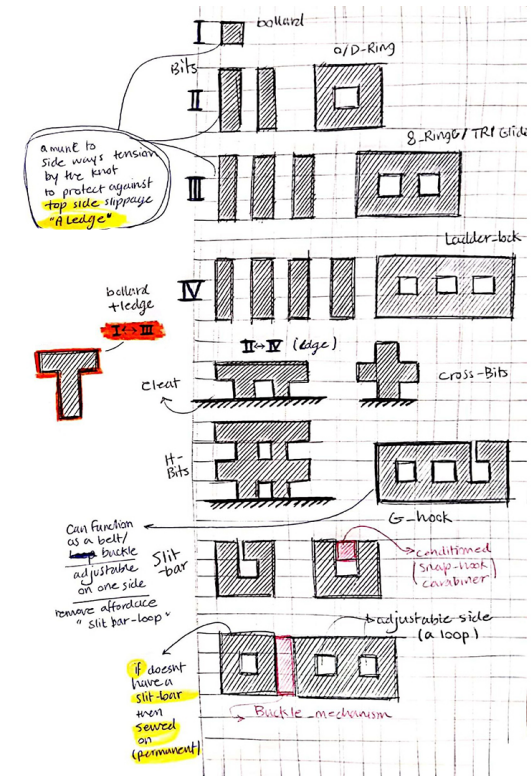 I
bollard
Bits
II
O/D-Ring
amune to
side ways tension
by the knot
to protect against
top side slippage
"A Ledge"
III
8_Ring/TRI Glide
IV
Ladder-lock
bollard
+ledge
I↔III
II↔IV (edge)
cleat
cross-Bits
H-
Bits
G_hook
Can function
as a belt/
buckle
adjustable
on one side
remove affordace
"slit bar-loop"
Slit-
bar
conditirned
(snap-hook
carabiner)
adjustable side
(a loop)
if doesnt
have a
slit-bar
then
sewed
on
(permanent)
Buckle_mechanism